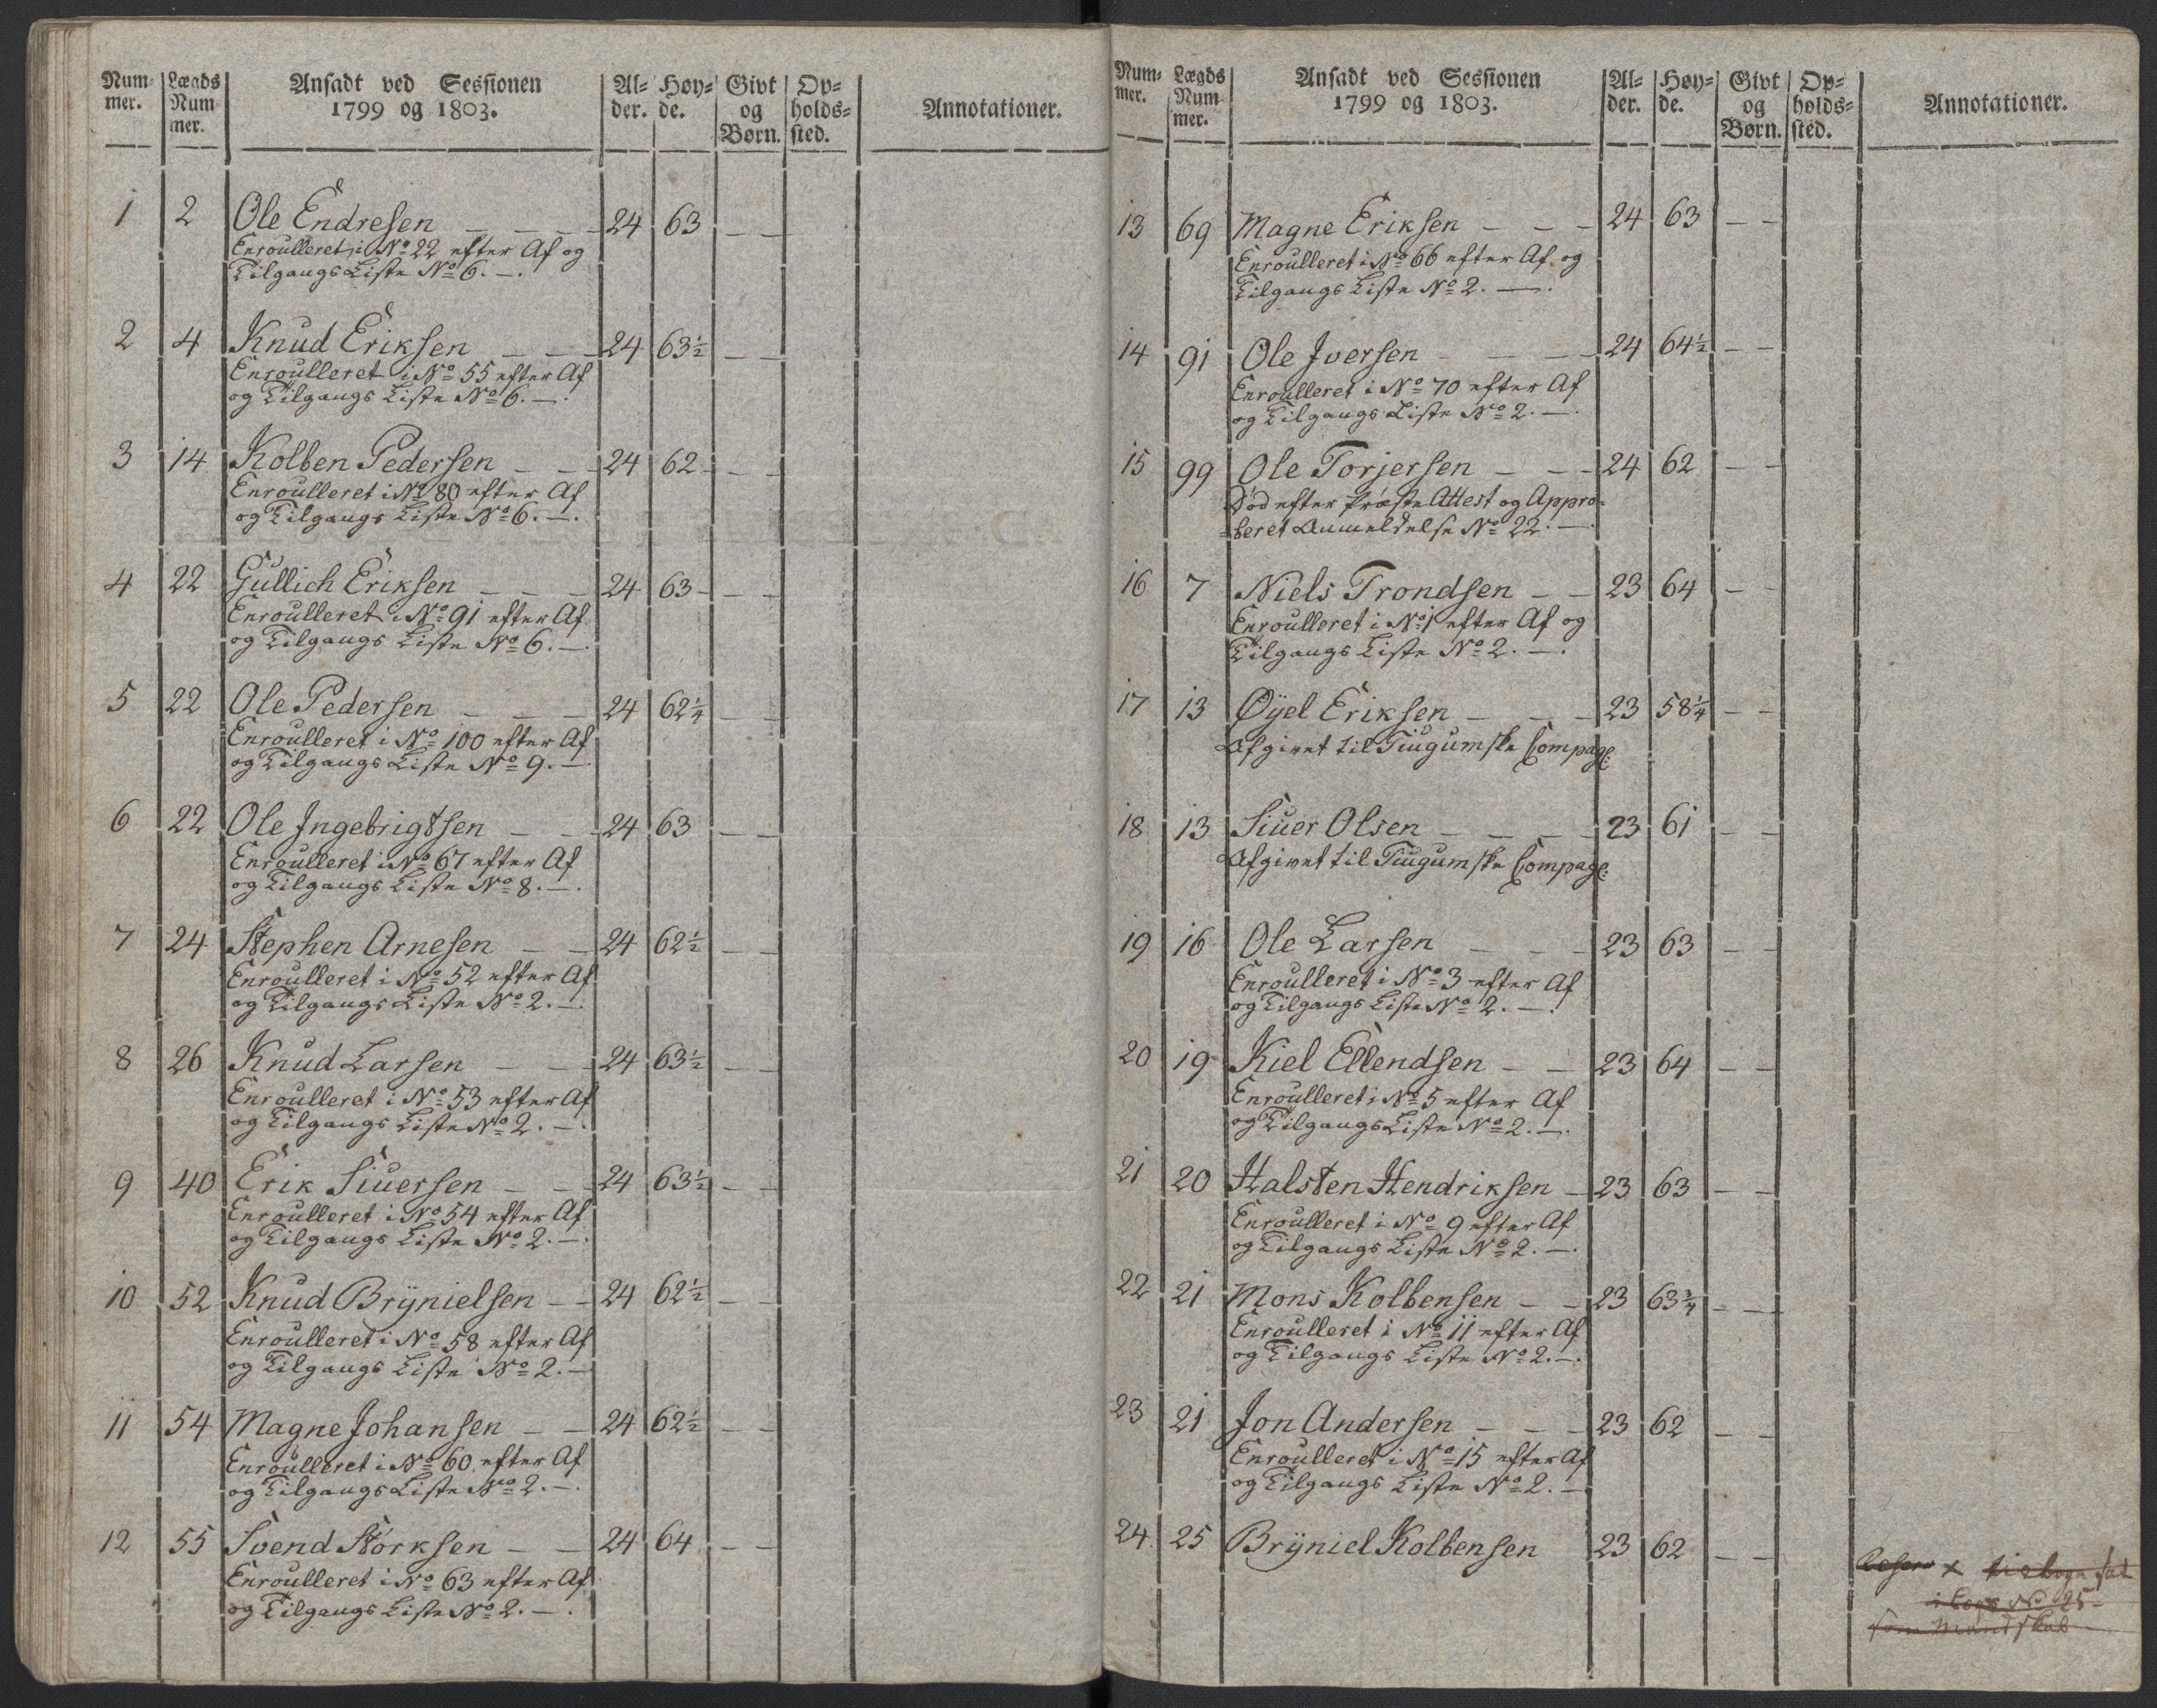 Num- Lægds Ansadt ved Sessionen Al- Høy- Givt Op-
mer. Num 1799 og 1803. der. de. og holds- Annotationer.
mer. Børn. sted.
1 2 Ole Endresen - - - 24 63 - -
Enroulleret i No 22 efter Af og
Tilgangs Liste No 6. -.
2 4 Knud Eriksen - - 24 63½ - -
Enroulleret i No 55 efter Af
og Tilgangs Liste No 6. -.
3 14 Kolben Pedersen - - 24 62 - -
Enroulleret i No 80 efter Af
og Tilgangs Liste No 6. -.
4 22 Gullich Eriksen - - - 24 63 - -
Enroulleret i No 91 efter Af
og Tilgangs Liste No 6. -.
5 22 Ole Pedersen - - - 24 62¼ - -
Enroulleret i No 100 efter Af
og Tilgangs Liste No 9. -.
6 22 Ole Ingebrigtsen - - 24 63 - -
Enroulleret i No 67 efter Af
og Tilgangs Liste No 8. -.
7 24 Stephen Arnesen - - 24 62½ - -
Enroulleret i No 52 efter Af
og Tilgangs Liste No 2. -.
8 26 Knud Larsen - - - 24 63½ - -
Enroulleret i No 53 efter Af
og Tilgangs Liste No 2. -.
9 40 Erik Siuersen - - 24 63½ - -
Enroulleret i No 54 efter Af
og Tilgangs Liste No 2. -.
10 52 Knud Brÿnielsen - - 24 62½ - -
Enroulleret i No 58 efter Af
og Tilgangs Liste No 2. -
11 54 Magne Johansen - - 24 62½ - -
Enroulleret i No 60 efter Af
og Tilgangs Liste No 2. -.
12 55 Svend Störksen - - 24 64 - -
Enroulleret i No 63 efter Af
og Tilgangs Liste No 2. -.
Num- Lægds Ansadt ved Sessionen Al- Høy- Givt Op-
mer. Num 1799 og 1803. der. de. og holds- Annotationer.
mer. Børn. sted.
13 69 Magne Eriksen - - - 24 63 - -
Enroulleret i No 66 efter Af og
Tilgangs Liste No 2. -.
14 91 Ole Iversen - - - 24 64½ - -
Enroulleret i No 70 efter Af
og Tilgangs Liste No 2. -.
15 99 Ole Torjersen - - - 24 62 - -
Död efter Præste Attest og Appro-
beret Anmeldelse No 22. -.
16 7 Niels Trondsen - - 23 64 - -
Enroulleret i No 1 efter Af og
Tilgangs Liste No 2. -.
17 13 Øÿel Eriksen - - - 23 58¼ - -
Afgivet til Tiugumske Compage:
18 13 Siuer Olsen - - - 23 61 - -
Afgivet til Tiugumske Compage:
19 16 Ole Larsen - - - 23 63 - -
Enroulleret i No 3 efter Af
og Tilgangs Liste No 2. -.
20 19 Kiel Ellendsen - - 23 64 - -
Enroulleret i No 5 efter Af
og Tilgangs Liste No 2. -.
21 20 Halsten Hendriksen - 23 63 - -
Enroulleret i No 9 efter Af
og Tilgangs Liste No 2. -.
22 21 Mons Kolbensen - - 23 63¾ - -
Enroulleret i No 11 efter Af
og Tilgangs Liste No 2. -.
23 21 Jon Andersen - - - 23 62 - -
Enroulleret i No 15 efter Af
og Tilgangs Liste No 2. -
24 25 Brÿniel Kolbensen 23 62 - -
i No 25
som Mandskab